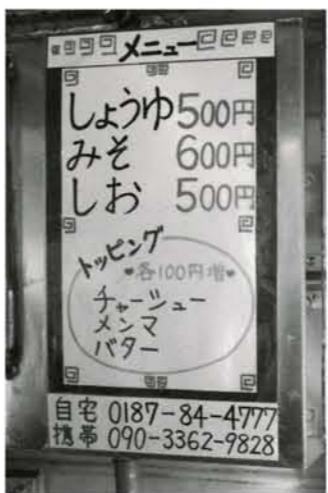 メニュー
しょうゆ 500円
みそ 600円
しお 500円
トッピング
♥各100円増♥
チャーシュー
メンマ
バター
自宅 0187-84-4777
携帯 090-3362-9828